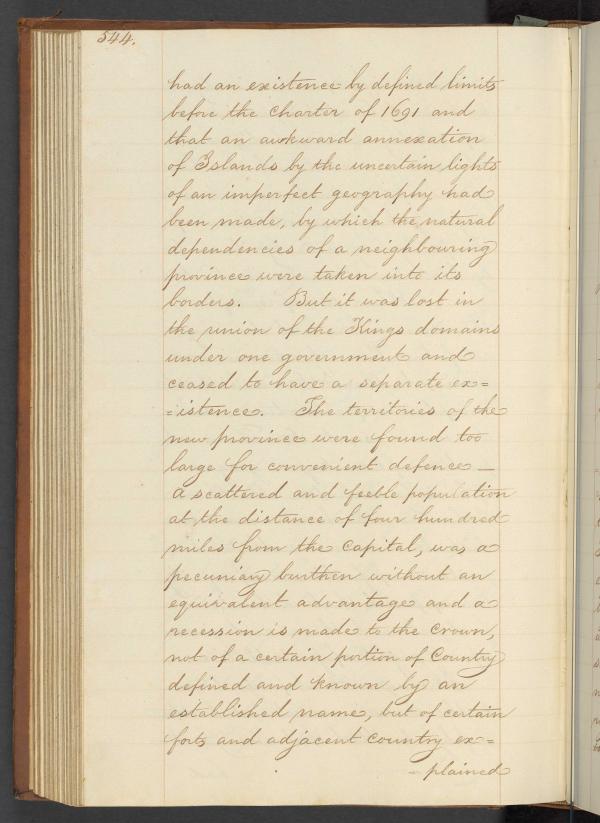 544.
had an existence by defined limits
before the Charter of 1691 and
that an awkward annexation
of Islands by the uncertain lights
of an imperfect geography had
been made, by which the natural
dependencies of a neighbouring
province were taken into its
borders. But it was lost in
the union of the Kings domains
under one government and
ceased to have a separate ex=
=istence. The territories of the
new province were found too
large for convenient defence —
a scattered and feeble population
at the distance of four hundred
miles from the Capital, was a
pecuniary burthen without an
equivalent advantage and a
recession is made to the Crown,
not of a certain portion of Country
defined and known by an
established name, but of certain
forts and adjacent country ex=
- plained